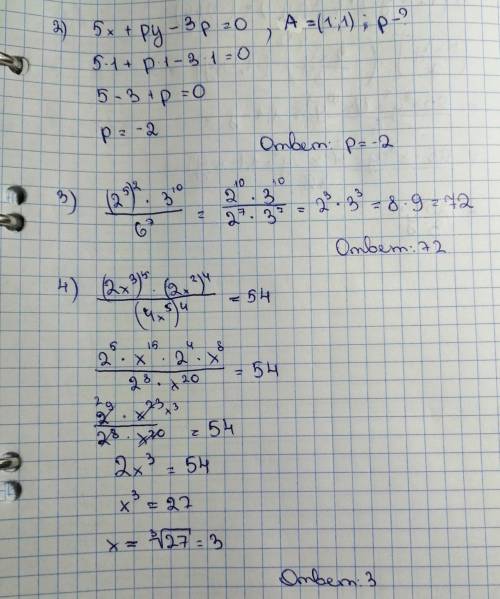 2) 5x + py - 3p = 0 , A = (1,1) ; p - ?
5·1 + p·1 - 3·1 = 0
5 - 3 + p = 0
p = -2
Ответ: p = -2
3) (2⁵)² · 3¹⁰ / 6⁷ = 2¹⁰ · 3¹⁰ / 2⁷ · 3⁷ = 2³ · 3³ = 8 · 9 = 72
Ответ: 72
4) (2x³)⁵ · (2x²)⁴ / (4x⁵)⁴ = 54
2⁵ · x¹⁵ · 2⁴ · x⁸ / 2⁸ · x²⁰ = 54
2 2⁹ · x²³ x³ / 2⁸ · x²⁰ = 54
2x³ = 54
x³ = 27
x = ³√27 = 3
Ответ: 3